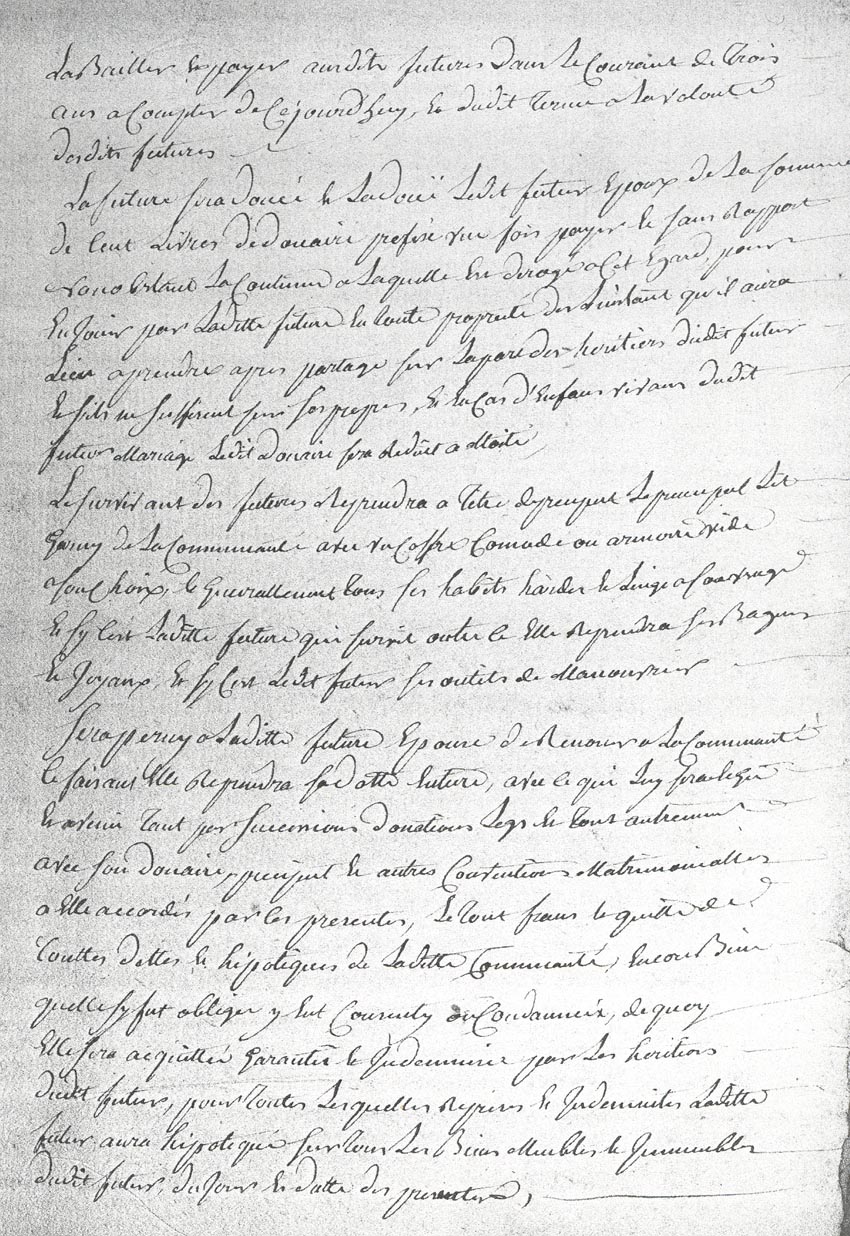 La Bailler et payer ausdits futures dans Le Courant de Trois
ans a Compter de Cejourdhuy, Et dudit Terme a La volonté
desdits futures
La future sera doueé et La doüe Ledit futur Epoux de La somme
de Cent Livres de douaire prefixe une fois payer et sans Rapport
nanobstant La Coutume a Laquelle Est derogé a Cet Egard, pour
En Jouir par Laditte future En toute propreté des L'instant qu'il aura
Lieu aprendre apres partage sur La part des heritiers dudit futur
Et s'ils ne suffisent sur ses propres, Et En Cas d'Enfans vivans dudit
futur Mariage Ledit douaire sera Reduit a Moitié
Le survivant des futures Reprendra a Titre de preciput Le principal Lit
Garny de La Communauté avec un Coffre Comode ou armoire vide
a son Choix, et Generallement tous ses habits hardes et Linge a son usage
Et sy C'est Laditte future qui survit outre ce Elle Reprendra ses Bagues
Et Joyaux, Et sy C'est Ledit futur ses outils de Manouvrier
Sera permy a Laditte future Epouse de Renoncer a La Communauté
Ce faisant Elle Reprendra sa dotte Entiere, avec ce qui Luy sera Echu
Et avenu Tant par successions donations Legs Et tout autrement
avec son douaire, preciput Et autres Conventions Matrimonialles
a Elle accordés par Ces presentes, Le Tout franc et quitte de
Touttes dettes Et hipoteques de Laditte Communauté, Encore Bien
quelle sy fut obligeé y Eut Consenty ou Condamneé, de quoy
Elle sera acquitteé garantie Et Indemniseé par Les heritiers
dudit futur, pour Toutes Lesquelles Reprises Et Indemnites Laditte
future aura hipoteque sur Tous Les Biens Meubles Et Immeubles
dudit futur, du Jour Et datte des presentes,